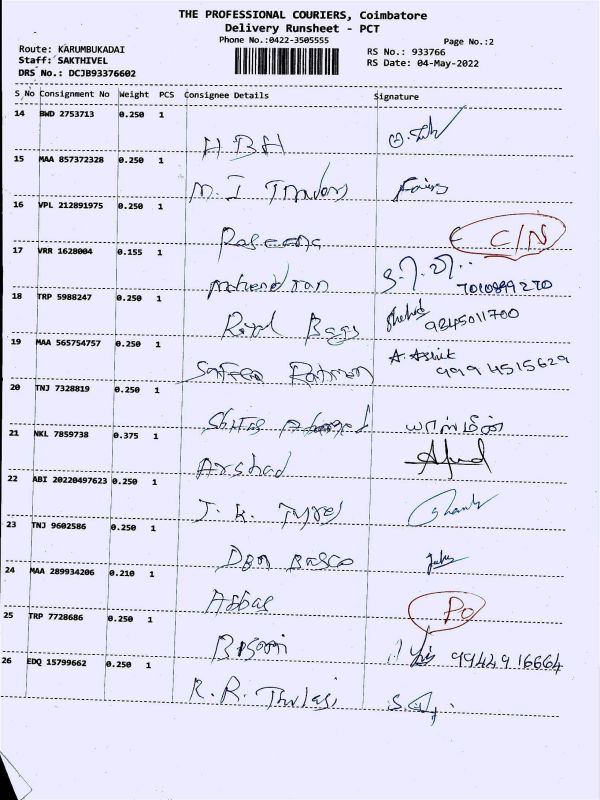 THE PROFESSIONAL COURIERS, Coimbatore
Delivery Runsheet - PCT
Phone No.:0422-3505555
Page No.:2
Route: KARUMBUKADAI
RS No.: 933766
Staff: SAKTHIVEL
RS Date: 04-May-2022
DRS No.: DCJB93376602
S_No Consignment No Weight PCS Consignee Details Signature
14 BWD 2753713 0.250 1
H BH
15 MAA 857372328 0.250 1
M. I Traders
16 VPL 212891975 0.250 1
C/N
17 VRR 1628004 0.155 1
Mahendran
7010899270
18 TRP 5988247 0.250 1
Royal Bags 9845011700
19 MAA 565754757 0.250 1
A. Ashik
Rahman 9994515629
20 TNJ 7328819 0.250 1
யாஸ்மின்
21 NKL 7859738 0.375 1
Arshad
22 ABI 20220497623 0.250 1
J. K. Tyres
23 TNJ 9602586 0.250 1
Don Bosco
24 MAA 289934206 0.210 1
Abbas PO
25 TRP 7728686 0.250 1
9942916664
26 EDQ 15799662 0.250 1
R. R. Thulasi